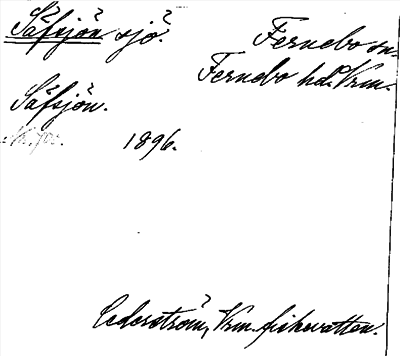 Säfsjön sjö.
Fernebo sn.
Fernebo hd. Vrm.
Säfsjön.
1896.
Cederström, Vrm. fiskevatten.